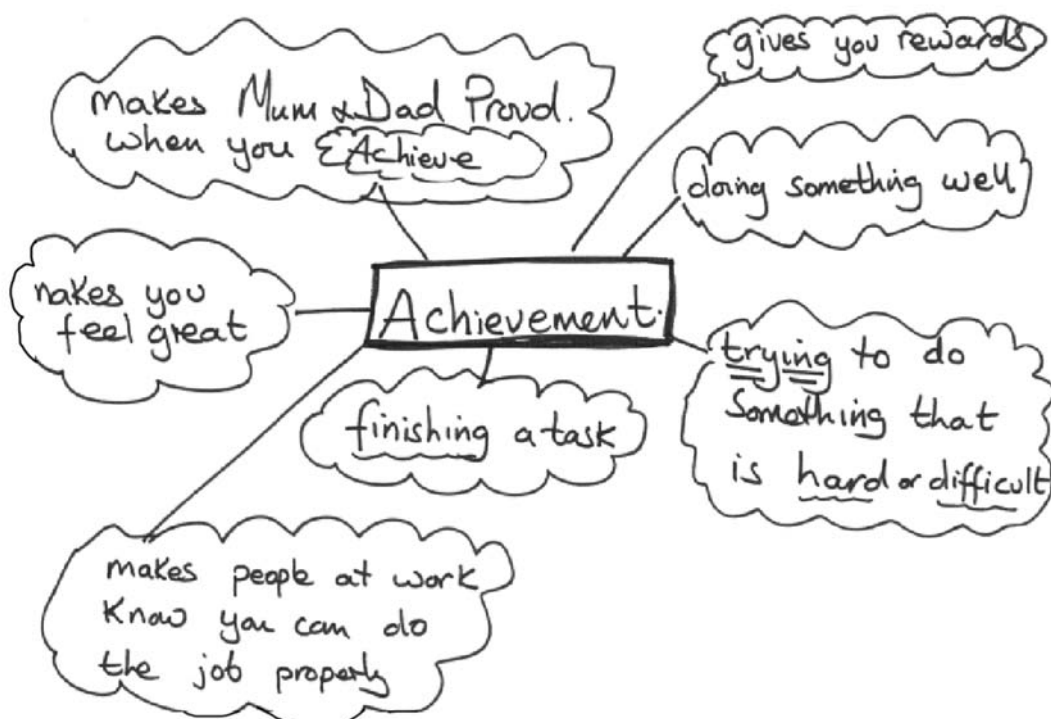 makes Mum & Dad Proud.
when you Achieve
gives you rewards
doing something well
makes you
feel great
Achievement.
trying to do
something that
is hard or difficult
finishing a task
makes people at work
know you can do
the job properly